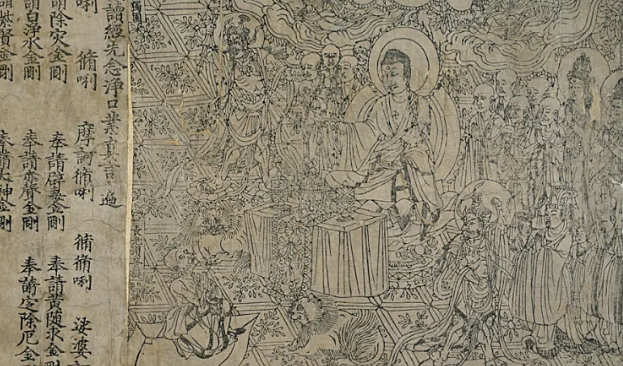 獨園
讀經先念淨口業真言一遍
唎 脩唎 摩訶脩唎 脩脩唎 娑婆
請除灾金剛 奉請辟毒金剛 奉請黃隨求金剛
請白淨水金剛 奉請赤聲金剛 奉請定除厄金
請紫賢金剛 奉請大神金剛